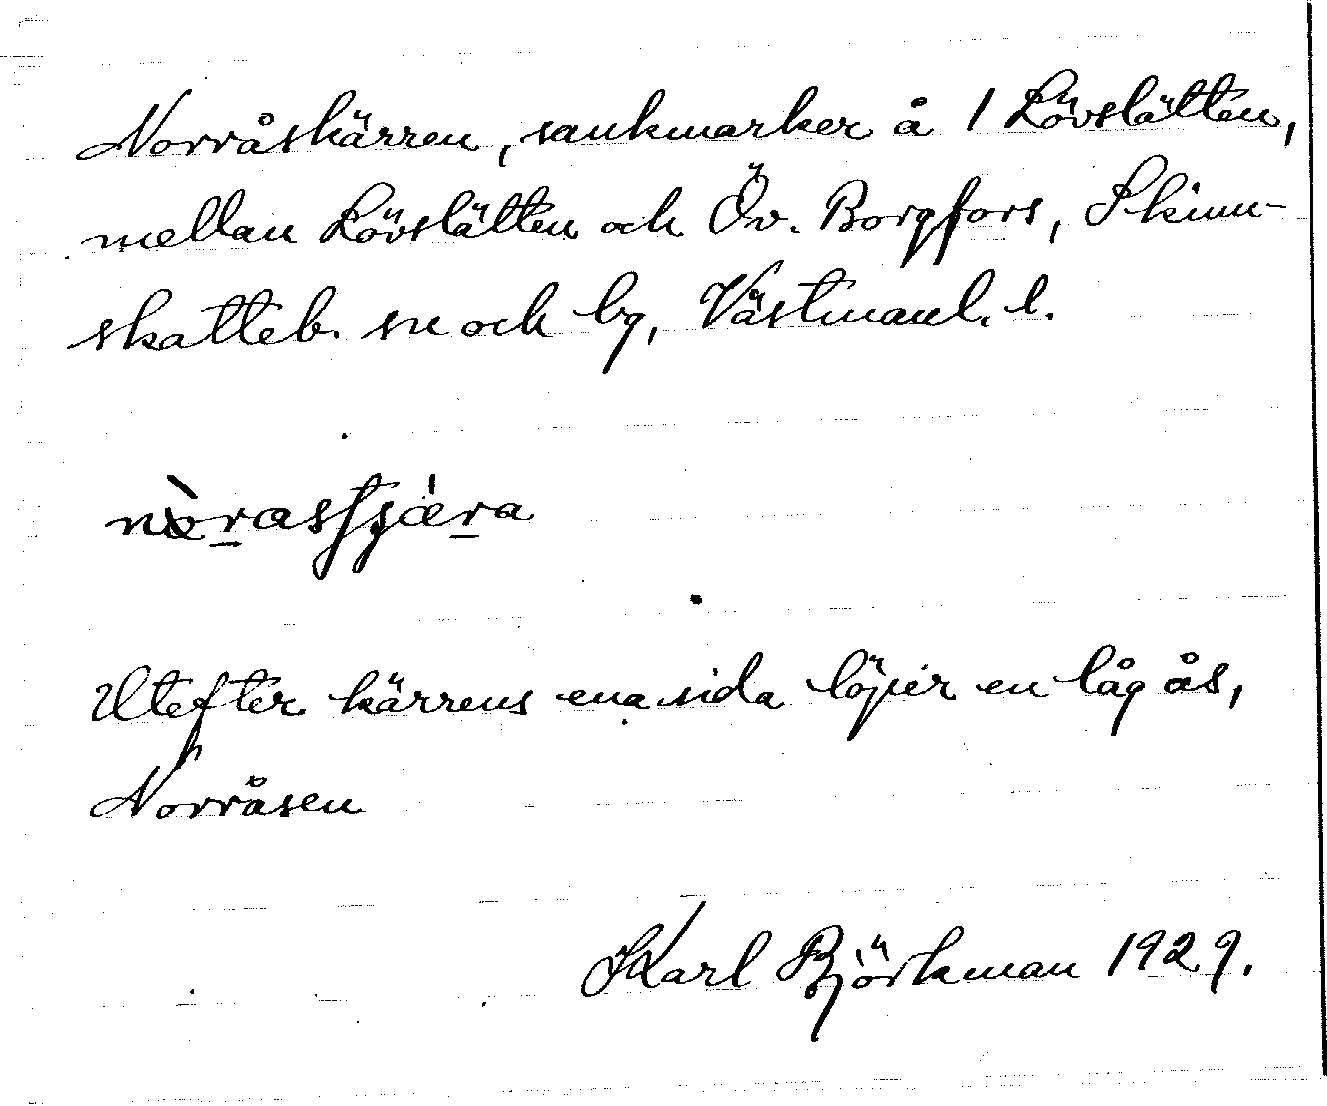 Norråskärren, sankmarker å 1 Lövslätten,
mellan Lövslätten och Öv. Borgfors, Skinn-
skatteb. sn och by, Västmanl. l.
Utefter kärrens ena sida löper en låg ås,
Norråsen
Karl Björkman 1929.